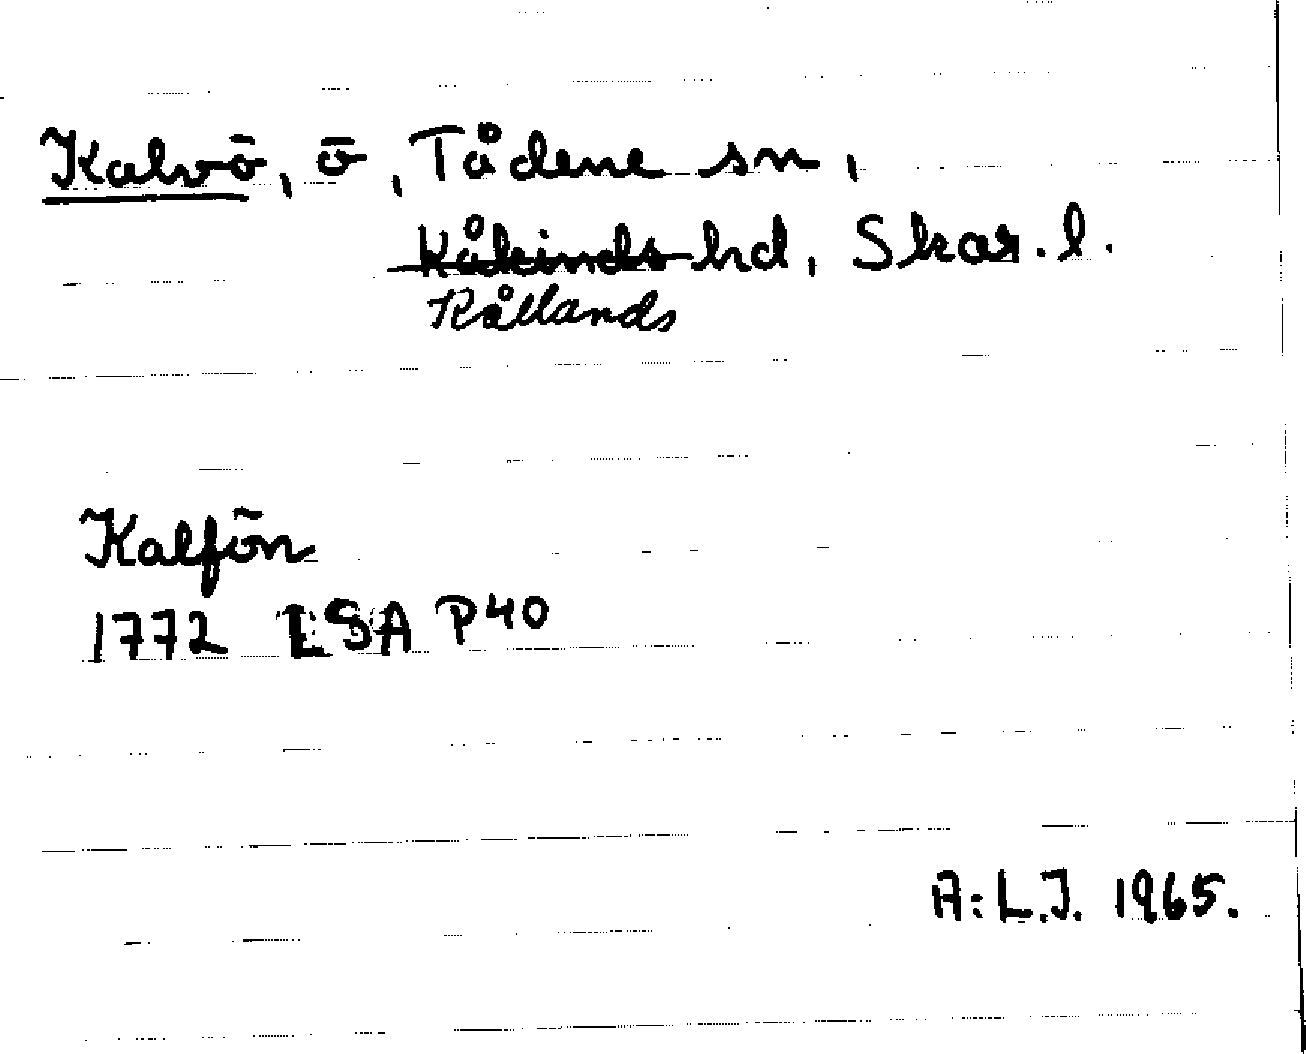 Kalvö, ö, Tådene sn,
~~Kåkinds~~ hd, Skar. l.
Kållands
Kalfön
1772 LSA P40
A:L.J. 1965.